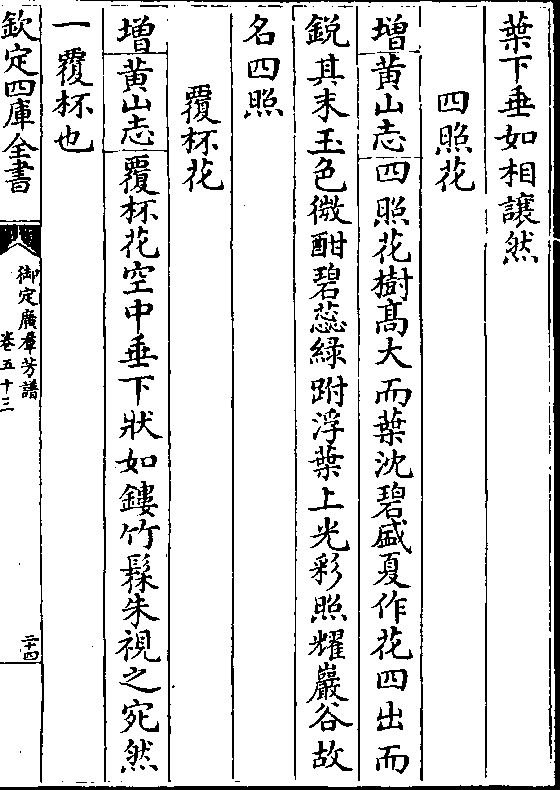 葉下垂如相讓然
四照花
增黄山志四照花樹髙大而葉沈碧盛夏作花四出而
鋭其末玉色微酣碧蕊綠跗浮葉上光彩照耀巖谷故
名四照
覆杯花
增黄山志覆杯花空中垂下狀如鏤竹髹朱視之宛然
一覆杯也
欽定四庫全書
御定廣羣芳譜
卷五十三
二十四